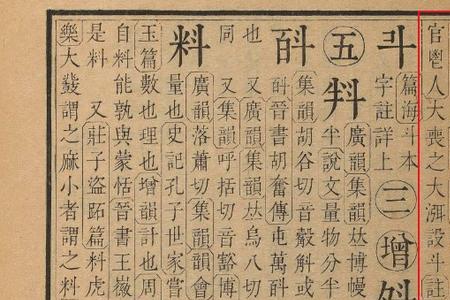 官鬯人大喪之大渳設斗註
斗
篇海斗本
字註詳上
三增
五
廣韻集韻𠀤博幔
半說文量物分半
集韻胡谷切音觳斛或
晉書胡奮傳屯萬斛
也 又廣韻集韻𠀤烏八切
同 又集韻呼括切音豁博
料
廣韻落蕭切集韻會
量也史記孔子世家嘗
玉篇數也理也增韻計也周
自料能孰與蒙恬晉書王
是料 又莊子盜跖篇料虎
樂大鼗謂之麻小者謂之料